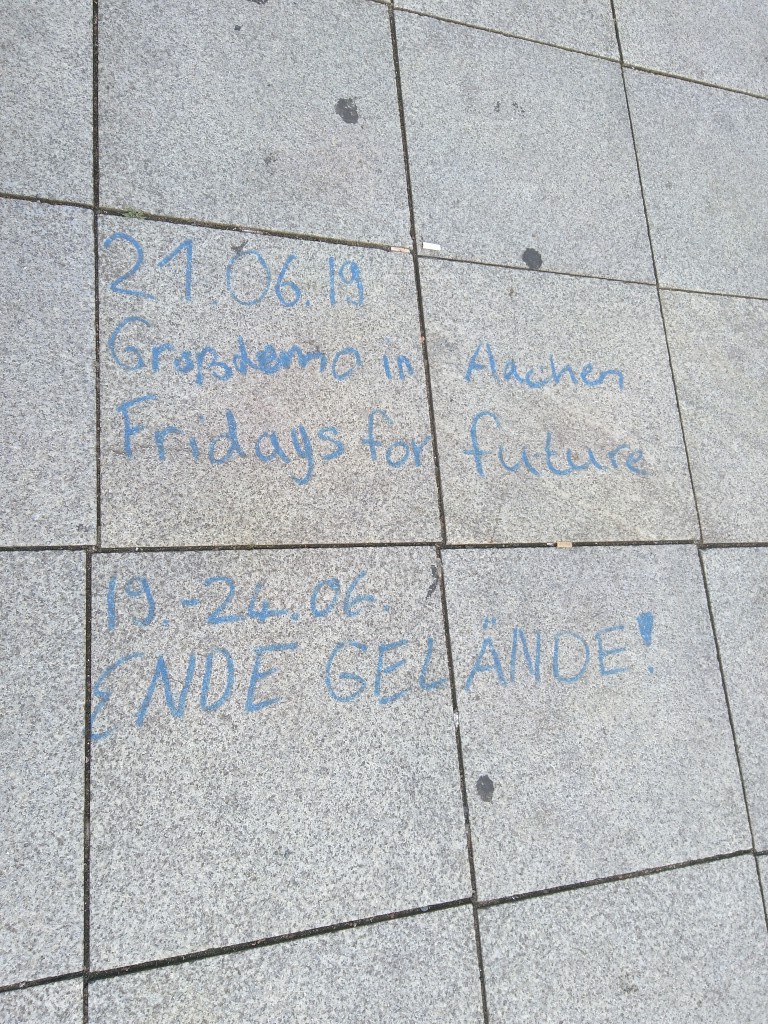 21.06.19
Großdemo in Aachen
Fridays for future
19.-24.06.
ENDE GELÄNDE!